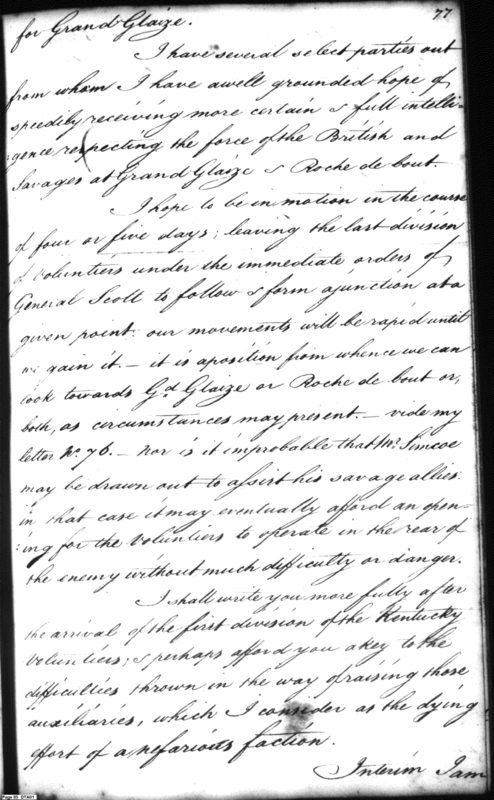 77
for Grand Glaize.
I have several select parties out
from whom I have a well grounded hope of
speedily receiving more certain & full intelli-
gence respecting the force of the British and
Savages at Grand Glaize & Roche de bout.
I hope to be in motion in the course
of four or five days; leaving the last division
of Volunteers under the immediate orders of
General Scott to follow & form a junction at a
given point. our movements will be rapid until
we gain it. — it is a position from whence we can
look towards Gd. Glaize or Roche de bout or,
both, as circumstances may present. — vide my
letter No. 76. — nor is it improbable that Mr. Simcoe
may be drawn out to assist his savage allies:
in that case it may eventually afford an open-
ing for the Volunteers to operate in the rear of
the enemy without much difficulty or danger.
I shall write you more fully after
the arrival of the first division of the Kentucky
Volunteers; & perhaps afford you a key to the
difficulties thrown in the way of raising those
auxiliaries, which I consider as the dying
effort of a nefarious faction.
Interim I am